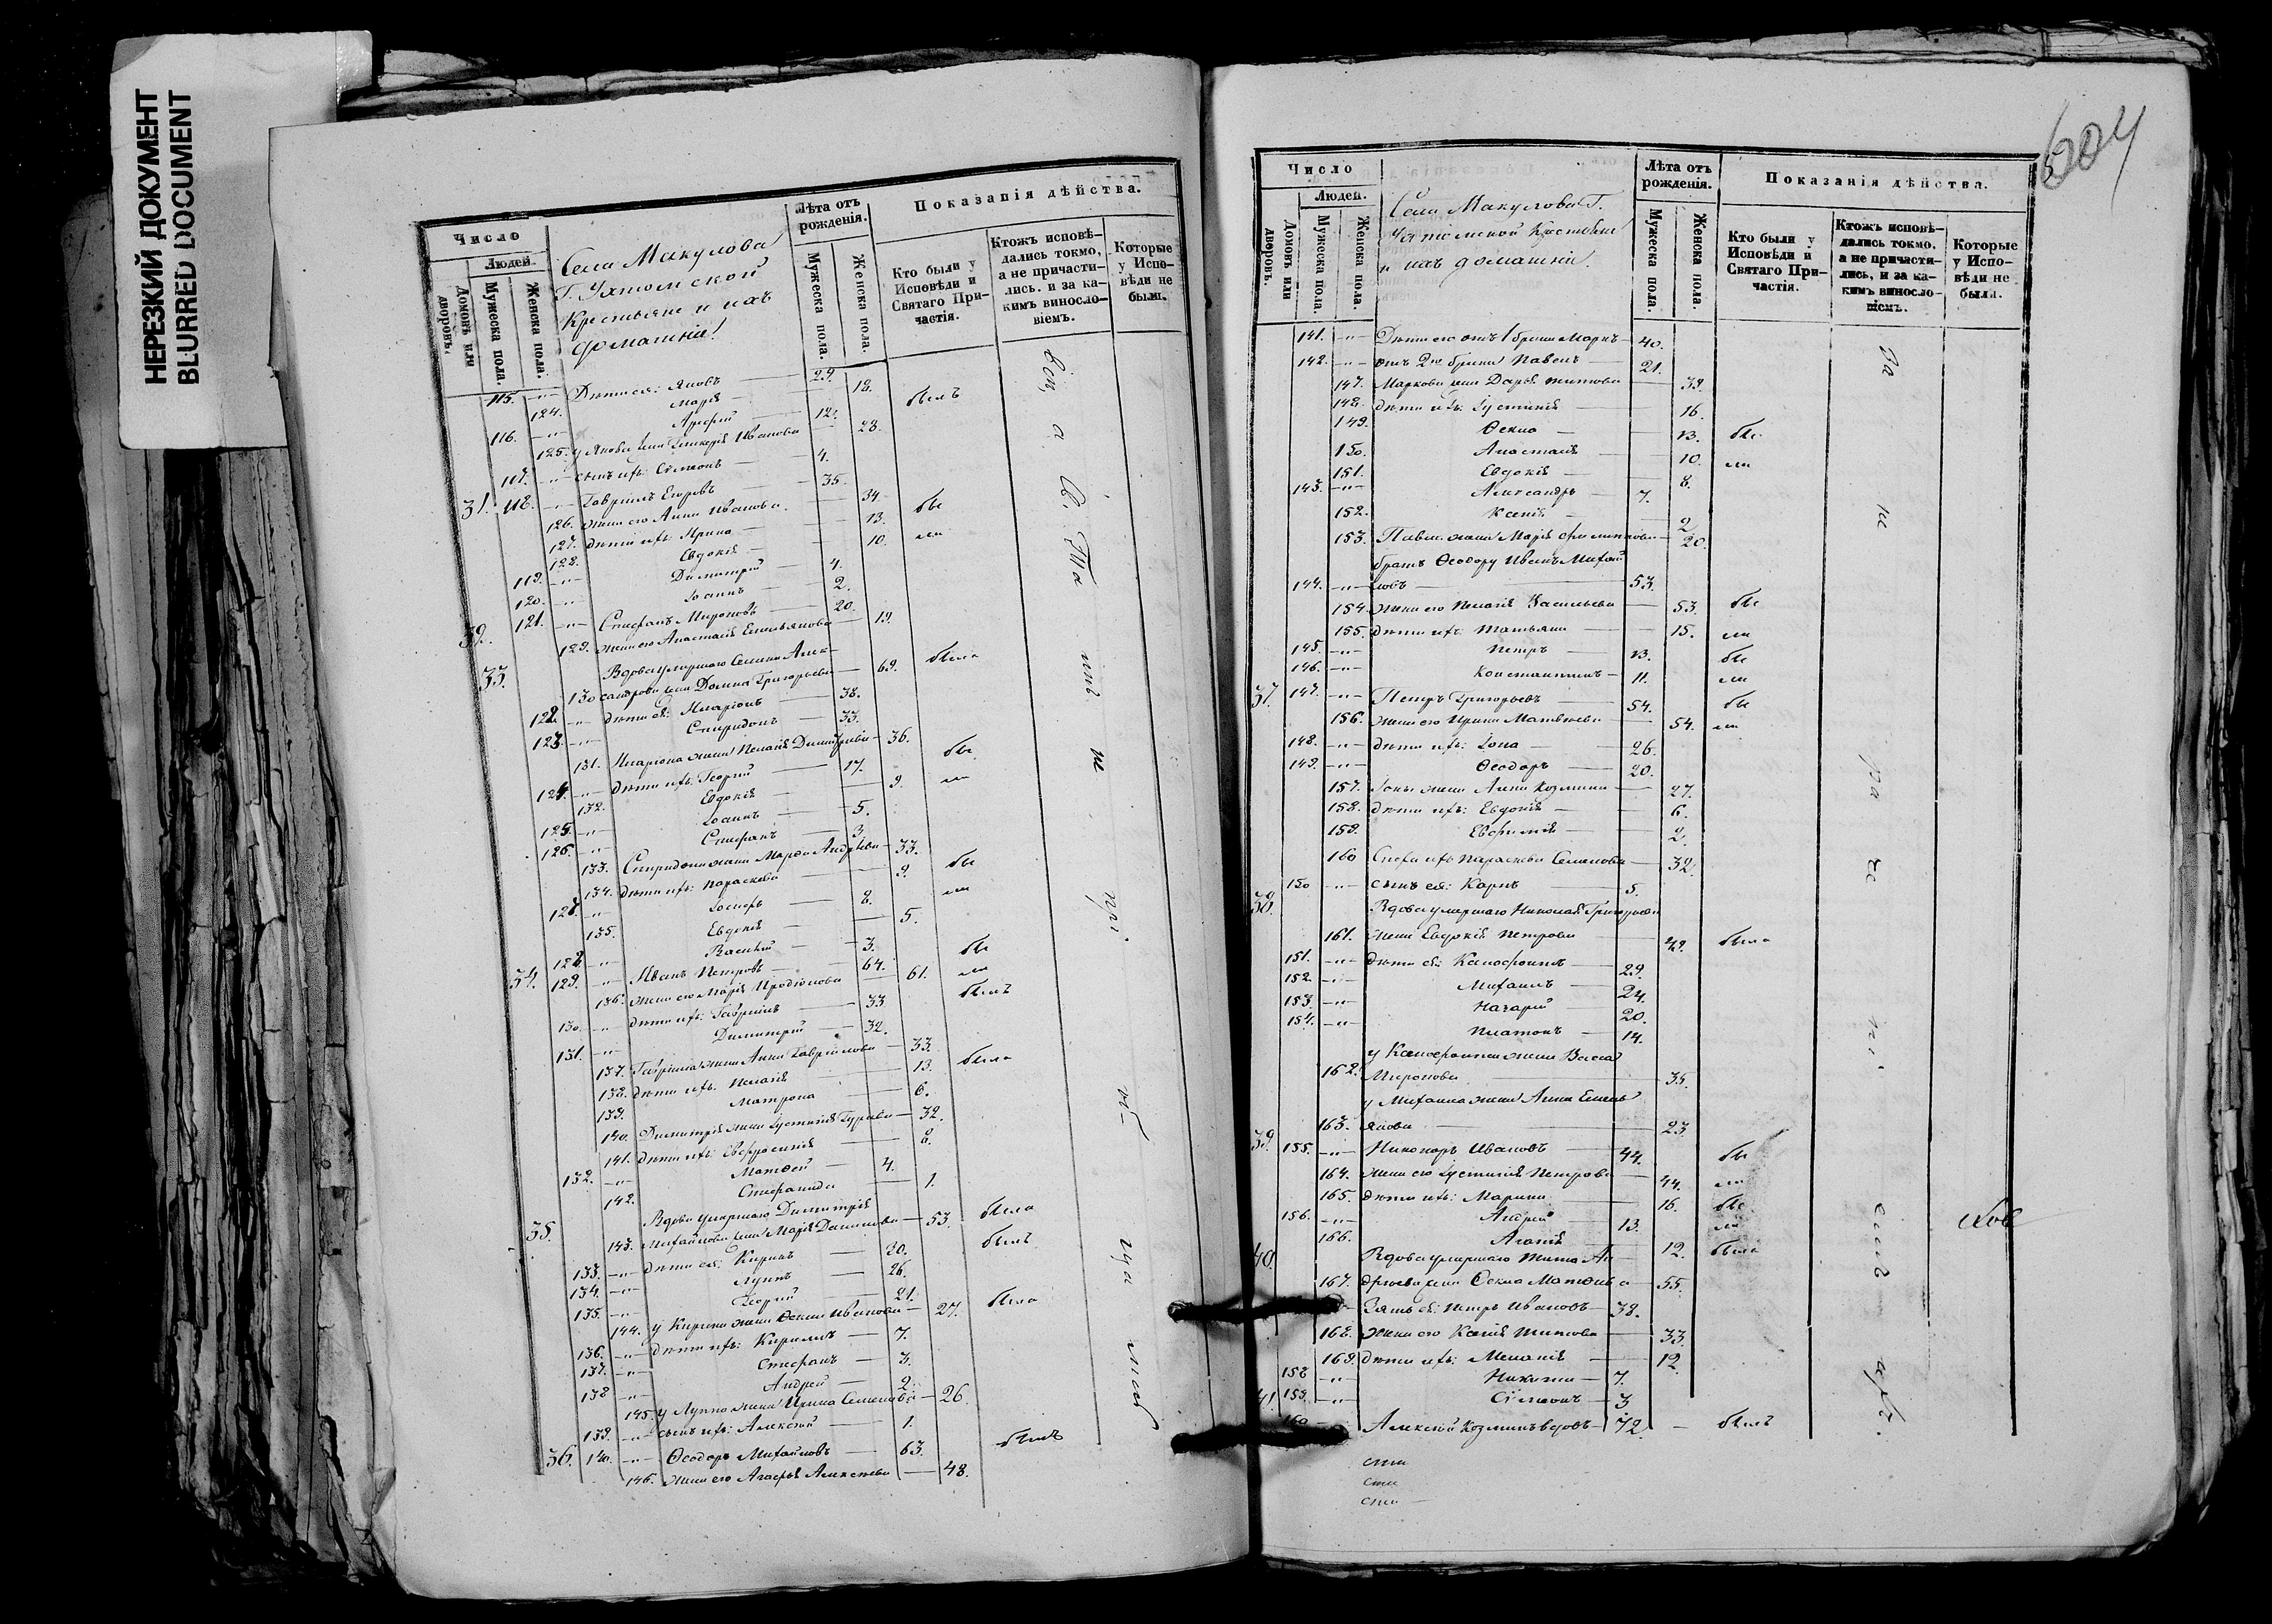 НЕРЕЗКИЙ ДОКУМЕНТ
BLURRED DOCUMENT
Число
Людей.
Домовъ или дворовъ.
Мужеска пола.
Женска пола.
Села Макулова
Г. Ухтомской
Крестьяне и ихъ
домашніи
Лѣта отъ рожденія.
Мужеска пола.
Женска пола.
Показанія дѣйства.
Кто были у Исповѣди и Святаго Причастія.
Ктожъ исповѣдались токмо, а не причастились. и за какимъ винословіемъ.
Которые у Исповѣди не были.
115. —"— Дѣти ея: Яковъ — 29.
124. Марія — 18. былъ
116. —"— Арефій — 12.
125. у Якова жена Гликерія Иванова — 28.
117. —"— сынъ ихъ: Сімеонъ — 4.
31. 118. —"— Гавріилъ Егоровъ — 35.
126. жена его Анна Иванова — 34. бы
127. дѣти ихъ: Ирина — 13.
128. Евдокія — 10. ли
119. —"— Димитрій — 4.
120. —"— Іоаннъ — 2.
32. 121. —"— Стефанъ Мироновъ — 20.
129. жена его Анастасія Емельянова — 19.
33. Вдова умершаго Семена Алек-
130 сандрова жена Домна Григорьева — 69. была
122. —"— дѣти ея: Иларіонъ — 38.
123. —"— Спиридонъ — 33.
131. Иларіона жена Пелагія Димитріева — 36. бы
124. —"— дѣти ихъ: Георгій — 17.
132. Евдокія — 9. ли
125. —"— Іоаннъ — 5.
126. —"— Стефанъ — 3.
133. Спиридона жена Марфа Андреева — 33. бы
134. дѣти ихъ: Параскева — 9.
127. —"— Іосифъ — 8. ли
135. Евдокія — 5.
128. —"— Василій — 3. бы
34. 129. —"— Иванъ Петровъ — 64.
136. жена его Марія Иродіонова — 61. ли
130. —"— дѣти ихъ: Гавріилъ — 33 былъ
131. —"— Димитрій — 32.
137. Гавріила жена Анна Гаврилова — 33.
138. дѣти ихъ: Пелагія — 13. была
139. Матрона — 6.
140. Димитрія жена Іустинія Гурьева — 32.
141. дѣти ихъ: Евфросинія — 8.
132. —"— Матѳей — 4.
142. Стефанида — 1.
35. Вдова умершаго Димитрія
143. Михайлова жена Марія Данилова — 53. была
133. —"— дѣти ея: Киринъ — 30. былъ
134. —"— Луппъ — 26.
135. —"— Георгій — 21.
144. у Кирина жена Ѳекла Иванова — 27. была
136. —"— дѣти ихъ: Кирилъ — 7.
137. —"— Стефанъ — 3.
138 —"— Андрей — 2.
145. у Луппа жена Ирина Семенова — 26.
139. —"— сынъ ихъ: Алексѣй — 1.
36. 140. —"— Ѳеодоръ Михайловъ — 63. былъ
146. жена его Агафья Алексѣева — 48.
604
Число
Людей.
Домовъ или дворовъ.
Мужеска пола.
Женска пола.
Села Макулова Г.
Ухтомской Крестьяне
и ихъ домашніи.
Лѣта отъ рожденія.
Мужеска пола.
Женска пола.
Показанія дѣйства.
Кто были у Исповѣди и Святаго Причастія.
Ктожъ исповѣдались токмо, а не причастились, и за какимъ винословіемъ.
Которые у Исповѣди не были.
141. —"— Дѣти его отъ 1 брака Маркъ — 40.
142. —"— отъ 2го брака Павелъ — 21.
147. Маркова жена Дарья Титова — 39.
148. дѣти ихъ: Іустинія — 16.
149. Ѳекла — 13. бы
150. Анастасія — 10. ли
151. Евдокія — 8.
143. —"— Александръ — 7.
152. Ксенія — 2
153. Павла жена Марія Филиппова — 20.
братъ Ѳеодору Иванъ Михай
144. —"— ловъ — 53.
154. жена его Пелагія Васильева — 53. бы
155. дѣти ихъ: Татьяна — 15. ли
145. —"— Петръ — 13. бы
146. —"— Константинъ — 11. ли
37. 147. —"— Петръ Григорьевъ — 54. бы
156. жена его Ирина Матвѣева — 54. ли
148. —"— дѣти ихъ: Іона — 26.
149. —"— Ѳеодоръ — 20.
157. Іоны жена Анна Козмина — 27.
158. дѣти ихъ: Евдокія — 6.
159. Евфимія — 2.
160 Сноха ихъ Параскева Семенова — 32.
150 —"— сынъ ея: Карпъ — 5.
38. Вдова умершаго Николая Григорьева
161. жена Евдокія Петрова — 49. была
151. —"— дѣти ея: Ксенофонтъ — 29.
152. —"— Михаилъ — 24.
153. —"— Назарій — 20.
154. —"— Платонъ — 14.
у Ксенофонта жена Васса
162. Миронова — 35.
у Михаила жена Анна Емель
163. янова — 23
39. 155. —"— Никаноръ Ивановъ — 44. бы
164. жена его Іустинія Петрова — 44. ли
165. дѣти ихъ: Марина — 16. бы
156. —"— Андрей — 13. ли
166. Агапія — 12. была
40. Вдова умершаго Тита Ан-
167. дреева жена Ѳекла Матѳеева — 55.
Зять ея: Петръ Ивановъ — 38.
168. жена его Ксенія Титова — 33
169. дѣти ихъ: Меланія — 12
158 —"— Никита — 7.
159. —"— Сімеонъ — 3
41. 160 Алексѣй Козминъ вдовъ — 72. — былъ